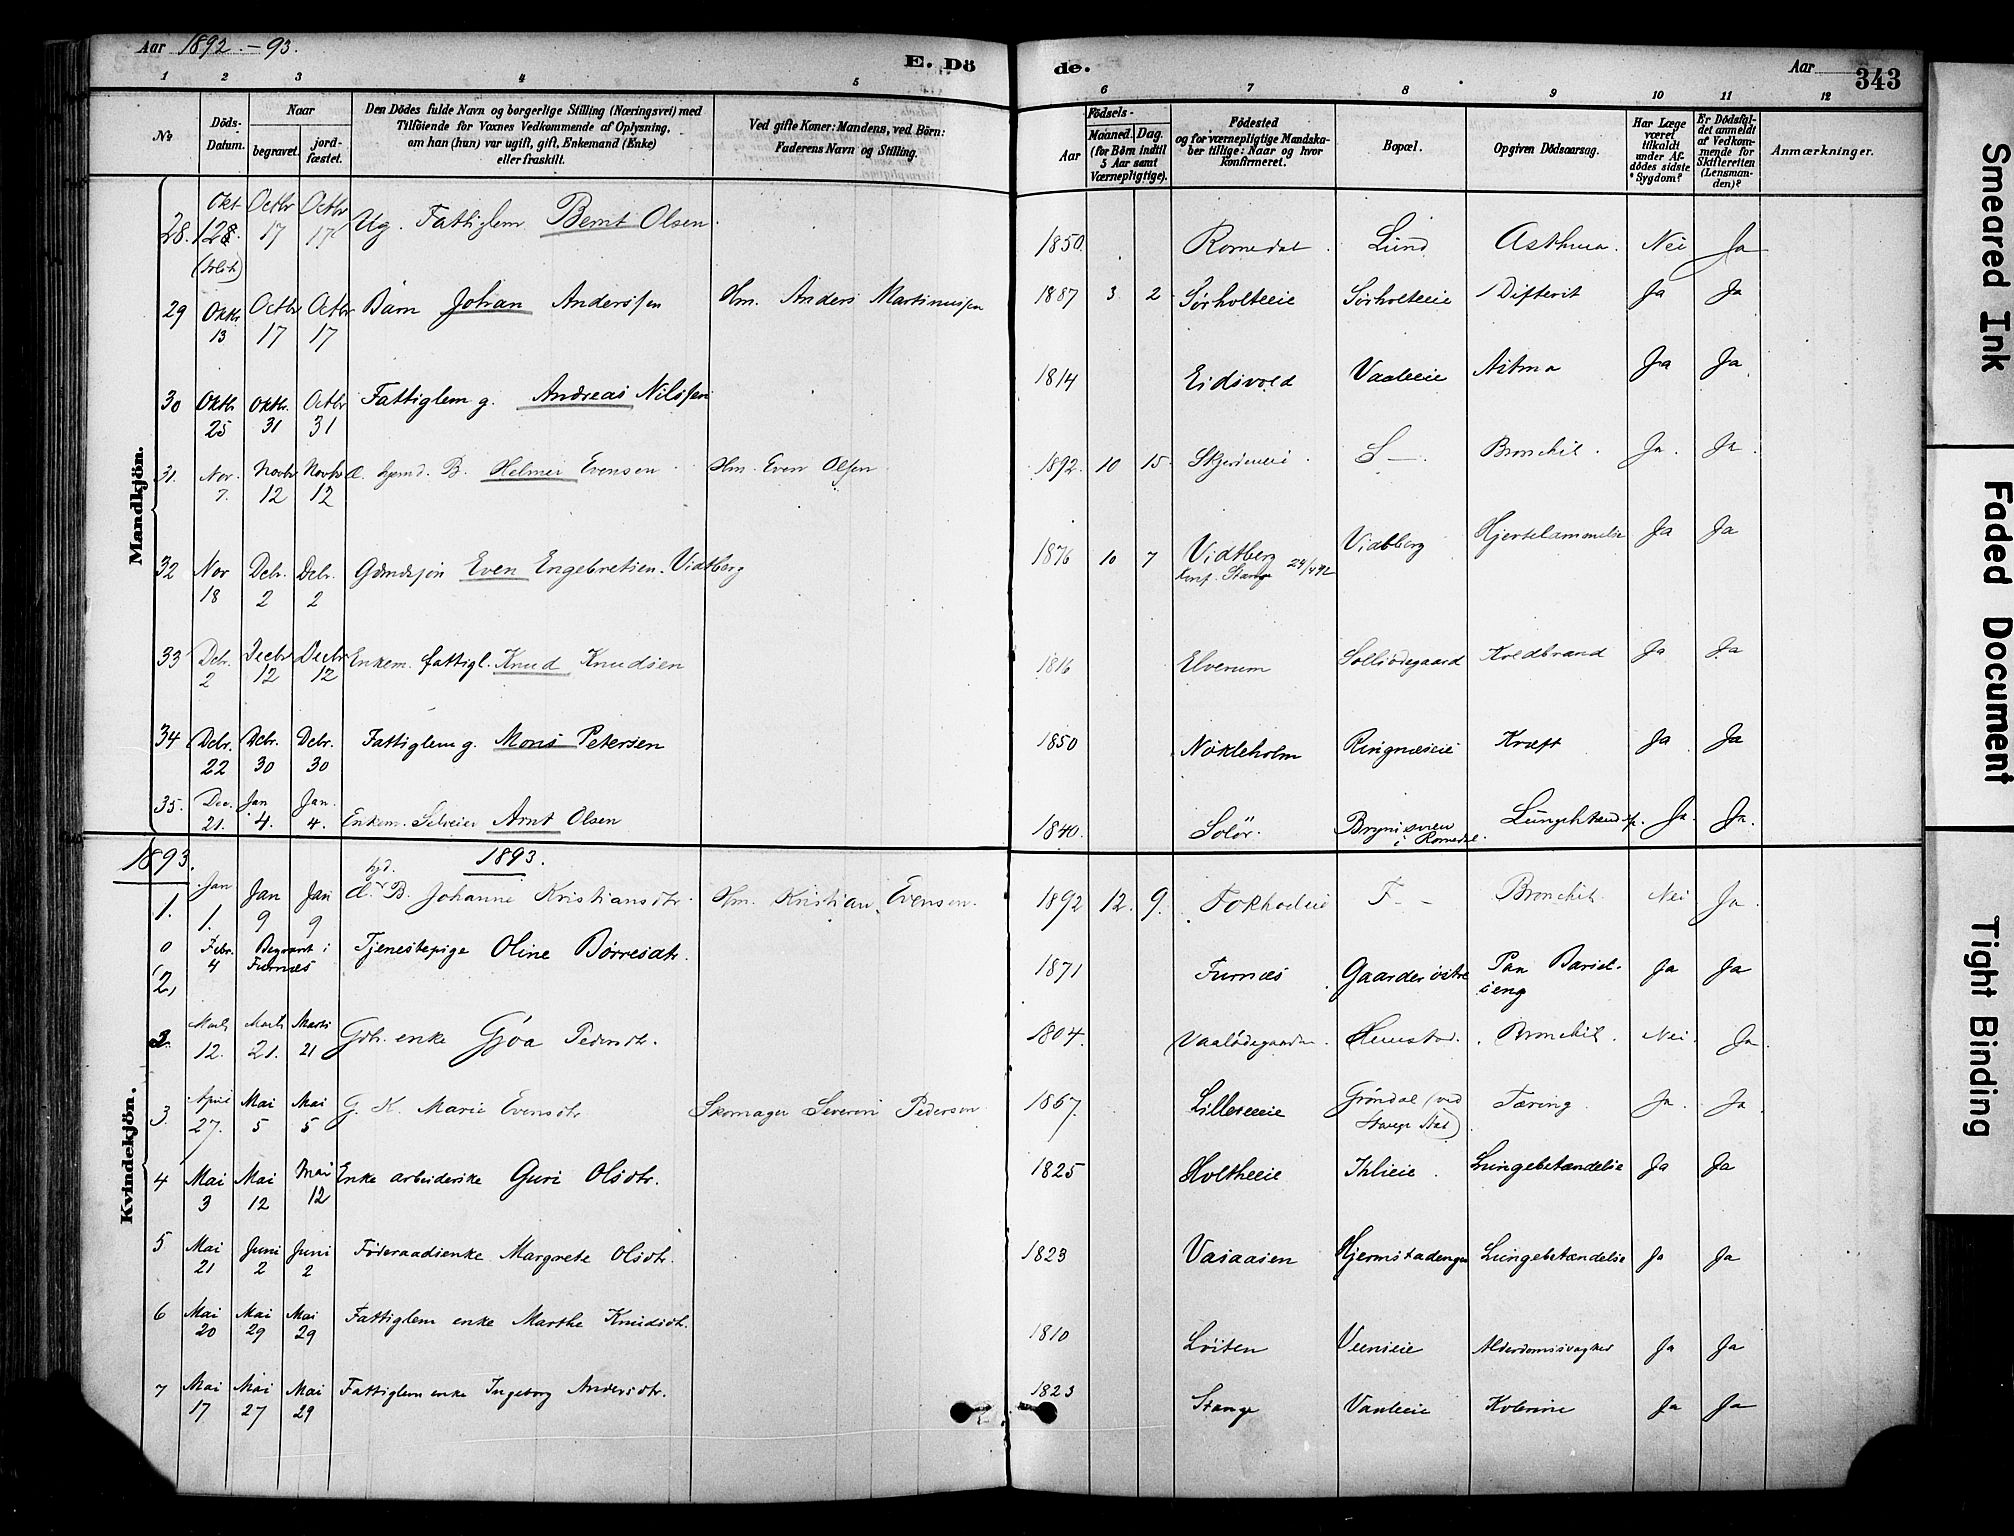 Aar 1892.-93.
E. Dö
de.
Aar
343
1 2 3 4 5 6 7 8 9 10 11 12
No
Döds-Datum.
Naar
begravet.
jord-fæstet.
Den Dödes fulde Navn og borgerlige Stilling (Næringsvei) med
Tilföiende for Voxnes Vedkommende af Oplysning,
om han (hun) var ugift, gift, Enkemand (Enke)
eller fraskilt.
Ved gifte Koner: Mandens, ved Börn:
Faderens Navn og Stilling.
Födsels-
Aar
Maaned. Dag.
(for Börn indtil
5 Aar samt
Værnepligtige).
Födested
og for værnepligtige Mandska-
ber tillige: Naar og hvor
Konfirmeret.
Bopæl.
Opgiven Dödsaarsag.
Har Læge
været
tilkaldt
under Af-
dödes sidste
Sygdom?
Er Dödsfal-
det anmeldt
af Vedkom-
mende for
Skifteretten
(Lensman-
den)?
Anmærkninger.
Mandkjön.
28. Okt 12 Octbr 17 Octbr 17 Ug. Fattiglem Bernt Olsen. 1850. Romedal. Lund Asthma. Nei Ja
29 Oktbr. 13 Octbr 17 Octbr 17 Barn Johan Anderssen Hm. Anders Martinussen 1887 3 2 Sørholteeie Sørholteeie Difterit Ja Ja
30 Oktbr 25 Oktbr. 31 Octbr 31 Fattiglem g. Andreas Nilssen 1814 Eidsvold Vaaleeie Astma Ja Ja
31. Nov. 7. Novbr 12 Novbr 12 d. hjemd. B. Helmer Evensen Hm. Even Olsen 1892. 10 15 S— Bronchit. Ja. Ja
32 Nov 18 Debr. 2 Debr. 2 Gdmdssøn Even Engebretsen Vidtberg 1876 10 7 Vidtberg Konf. Stange Vidtberg Hjertelammelse Ja Ja
33 Debr. 2 Decbr 12 Decbr 12 Enkem. fattigl. Knud Knudsen 1816 Elverum Solliødegaard Koldbrand Ja Ja
34 Debr. 22 Debr. 30 Debr. 30 Fattiglem g. Mons Petersen 1850 Nøkleholm Ringnæseie Kræft Ja Ja
35. Dec. 21. Jan 4. Jan. 4. Enkem. Selveier Arnt Olsen 1840. Solör. i Romedal. Ja. Ja.
1893. 1893.
Kvindekjön.
1. Jan 1. Jan 9 Jan 9 hjd. d. B. Johanne Kristiansdtr. Hm. Kristian Evensen. 1892 12. 9. F— Bronchit. Nei Ja
0 2, Febr. 4 Begravet i Furnæs Tjenestepige Oline Børresdtr. 1871 Furnæs Gaarder østre Paa Barsel-seng Ja Ja
2. Marts 12. Marts 21. Marts 21 Gdbr. enke Gjøa Pedersdtr. 1804. Vaalødegaarden. Hemstad. Bronchit. Nei. Ja
3. April 27. Mai 5 Mai 5 G. K. Marie Evensdtr. Skomager Severin Pedersen 1867. Lilleseeie Grøndal (ved Stange Stat.) Tæring. Ja. Ja.
4 Mai 3 Mai 12 Mai 12 Enke arbeiderske Guri Olsdtr. 1825 Holtheeie Ihlieie. Lungebetændelse Ja Ja
5 Mai 21 Juni 2 Juni 2 Føderaadsenke Margrete Olsdtr. 1823 Vasaasen Hjermstadengen Lungebetændelse Ja Ja
6 Mai 20 Mai 29 Mai 29 Fattiglem enke Marthe Knudsdtr. 1810 Løiten Veenseie Alderdomssvaghed Ja Ja
7 Mai 17 Mai 27 Mai 29 Fattiglem enke Ingeborg Andersdtr. 1823 Stange Vaaleeie Kolerine Ja Ja
Smeared Ink
Faded Document
Tight Binding